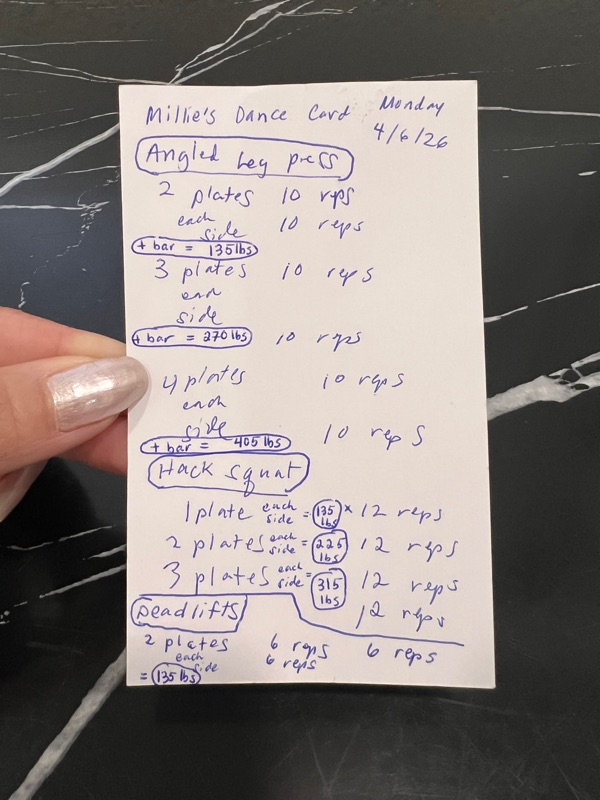 Millie's Dance Card Monday
4/6/26
Angled Leg press
2 plates 10 reps
each side 10 reps
+ bar = 135 lbs
3 plates 10 reps
each
side
+ bar = 270 lbs 10 reps
4 plates 10 reps
each
side 10 reps
+ bar = 405 lbs
Hack squat
1 plate each side = 135 lbs x 12 reps
2 plates each side = 225 lbs 12 reps
3 plates each side = 315 lbs 12 reps
12 reps
Deadlifts
2 plates 6 reps 6 reps
each side 6 reps
= 135 lbs